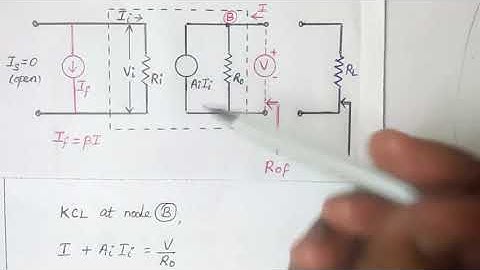 Ii →
B
← I
Is=0
(open)
If
Vi
Ri
AiIi
Ro
+
V
-
RL
If = βI
Rof
KCL at node B,
I + AiIi = V/Ro